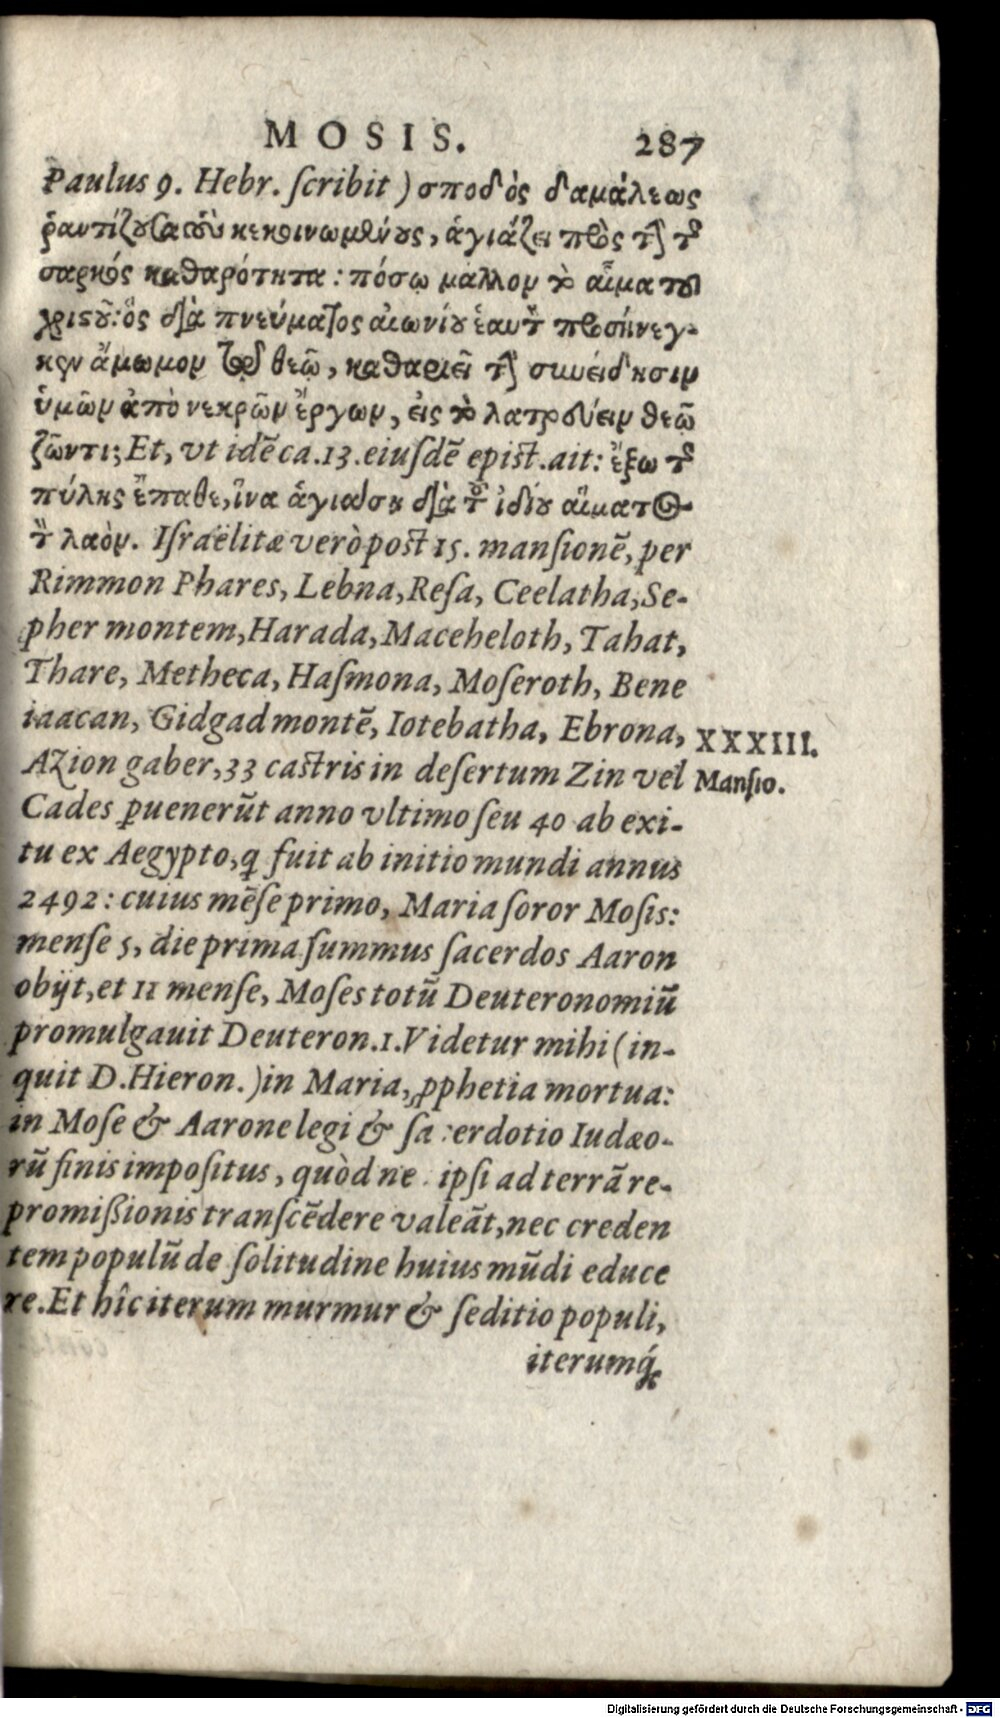 MOSIS. 287
Paulus 9. Hebr. ſcribit) σποδὸς δαμάλεως
ῥαντίζουσα τοὺς κεκοινωμένους, ἁγιάζει πρὸς τὴν τῆς
σαρκὸς καθαρότητα: πόσῳ μαλλον τὸ αἷμα τοῦ
χριστοῦ: ὃς διὰ πνεύματος αἰωνίου ἑαυτὸν προσήνεγ-
κεν ἄμωμον τῷ θεῷ, καθαριεῖ τὴν συνείδησιν
ὑμῶν ἀπὸ νεκρῶν ἔργων, εἰς τὸ λατρεύειν θεῷ
ζῶντι; Et, vt idē ca.13.eiuſdē epiſt.ait: ἔξω τῆς
πύλης ἔπαθε, ἵνα ἁγιάσῃ διὰ τοῦ ἰδίου αἵματος
τὸν λαὸν. Iſraëlitæ verò poſt 15. manſionē, per
Rimmon Phares, Lebna, Reſa, Ceelatha, Se-
pher montem, Harada, Maceheloth, Tahat,
Thare, Metheca, Haſmona, Moſeroth, Bene
iaacan, Gidgad montē, Iotebatha, Ebrona,
XXXIII.
Azion gaber, 33 caſtris in deſertum Zin vel
Manſio.
Cades ꝑuenerūt anno vltimo ſeu 40 ab exi-
tu ex Aegypto, q fuit ab initio mundi annus
2492: cuius mēſe primo, Maria ſoror Moſis:
menſe 5, die prima ſummus ſacerdos Aaron
obijt, et 11 menſe, Moſes totū Deuteronomiū
promulgauit Deuteron.1. Videtur mihi (in-
quit D.Hieron.) in Maria, ꝓphetia mortua:
in Moſe & Aarone legi & ſa erdotio Iudæo-
rū finis impoſitus, quòd ne ipſi ad terrā re-
promißionis tranſcēdere valeāt, nec creden
tem populū de ſolitudine huius mūdi educe
re. Et hîc iterum murmur & ſeditio populi,
iterumq́;
Digitalisierung gefördert durch die Deutsche Forschungsgemeinschaft - DFG